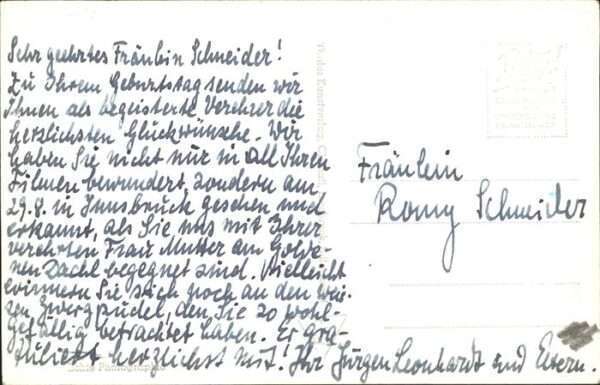 Sehr geehrtes Fräulein Schneider!
Zu Ihrem Geburtstag senden wir
Ihnen als begeisterte Verehrer die
herzlichsten Glückwünsche. Wir
haben Sie nicht nur in all Ihren
Filmen bewundert, sondern am
29.8. in Innsbruck gesehen und
erkannt, als Sie uns mit Ihrer
verehrten Frau Mutter am Golde-
nen Dachl begegnet sind. Vielleicht
erinnern Sie sich noch an den wei-
ßen Zwergpudel, den Sie so wohl-
gefällig betrachtet haben. Er gra-
tuliert herzlichst mit! Ihr Jürgen Leonhardt und Eltern.
Fräulein
Romy Schneider